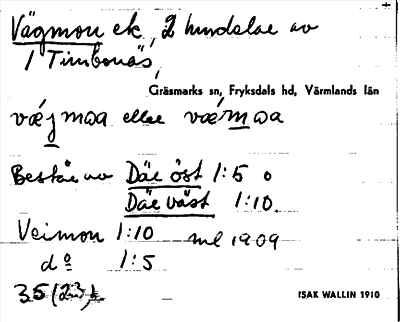 Vägmon ek, 2 hundelar av
1 Timbonäs,
Gräsmarks sn, Fryksdals hd, Värmlands län
væ̀j mɷa eller væ̀r mɷa
Består av Däe öst 1:5 o
Däe väst 1:10.
Veimon 1:10 ml 1909
do 1:5
35 (23).
ISAK WALLIN 1910